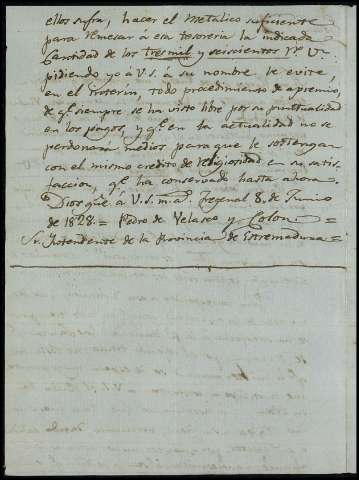 ellos sufra, hacer el Metalico suficiente
para remesar á esa tesoreria la indicada
Cantidad de los tres mil y seiscientos r.s V.n
pidiendo yo á V.S. á su nombre le evite,
en el interin, todo procedimiento de apremio,
de q.e siempre se ha visto libre por su puntualidad
en los pagos, y q.e en la actualidad no se
perdonará medios para que le sostengan
con el mismo credito de religiosidad en su satis-
faccion, q.e ha conservado hasta ahora.
Dios gue á V.S. m.s a.s Fregenal 8. de Junio
de 1828. = Pedro de Velasco y Colon =
Sr. Yntendente de la Provincia de Estremadura =